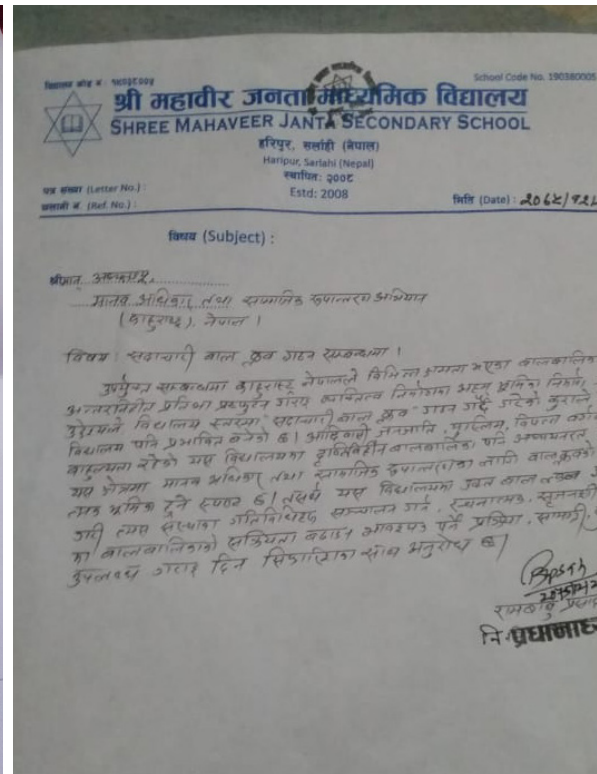 विद्यालय कोड नं : १९०३८०००५
School Code No. 190380005
श्री महावीर जनता माध्यमिक विद्यालय
SHREE MAHAVEER JANTA SECONDARY SCHOOL
हरिपुर, सर्लाही (नेपाल)
Haripur, Sarlahi (Nepal)
स्थापित: २००८
Estd: 2008
पत्र संख्या (Letter No.) :
चलानी नं. (Ref. No.) :
मिति (Date) :
विषय (Subject) :
श्रीमान्
मानव अधिकार तथा सामाजिक रूपान्तरण अभियान
(काहुराष्ट्र), नेपाल ।
विषय : सदाचारी बाल क्लव गठन सम्बन्धमा ।
उपर्युक्त सम्बन्धमा काहुराष्ट्र नेपालले विभिन्न क्षमता भएका बालबालिका
अन्तरनिहित प्रतिभा प्रस्फुटन गराइ व्यक्तित्व
उद्देश्यले विद्यालय स्तरमा "सदाचारी बाल क्लव" गठन गर्दै गरेको कुराले
विद्यालय पनि प्रभावित बनेको छ । आदिवासी जनजाति, मुस्लिम, विपन्न
बाहुल्यता रहेको यस विद्यालयमा बालबालिका पनि अध्ययनरत
यस क्षेत्रमा मानव अधिकार तथा सामाजिक रूपान्तरणका लागि बाल क्लवको
भूमिका हुने स्पष्ट छ । तसर्थ यस विद्यालयमा उक्त बाल क्लव
गरी त्यस संस्थाका गतिविधिहरू सञ्चालन गर्न, रचनात्मक,
का बालबालिकाको सक्रियता बढाउन आवश्यक पर्ने प्रक्रिया, सामाग्री
उपलब्ध गराइ दिन सिफारिसका साथ अनुरोध छ ।
रामबाबु
नि. प्रधानाध्या